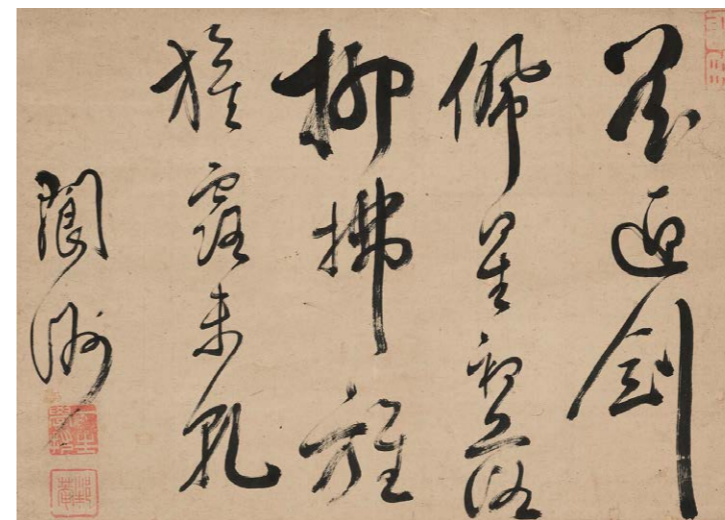 花迎劍
佩星初落
柳拂旌
旗露未乾
閬洲